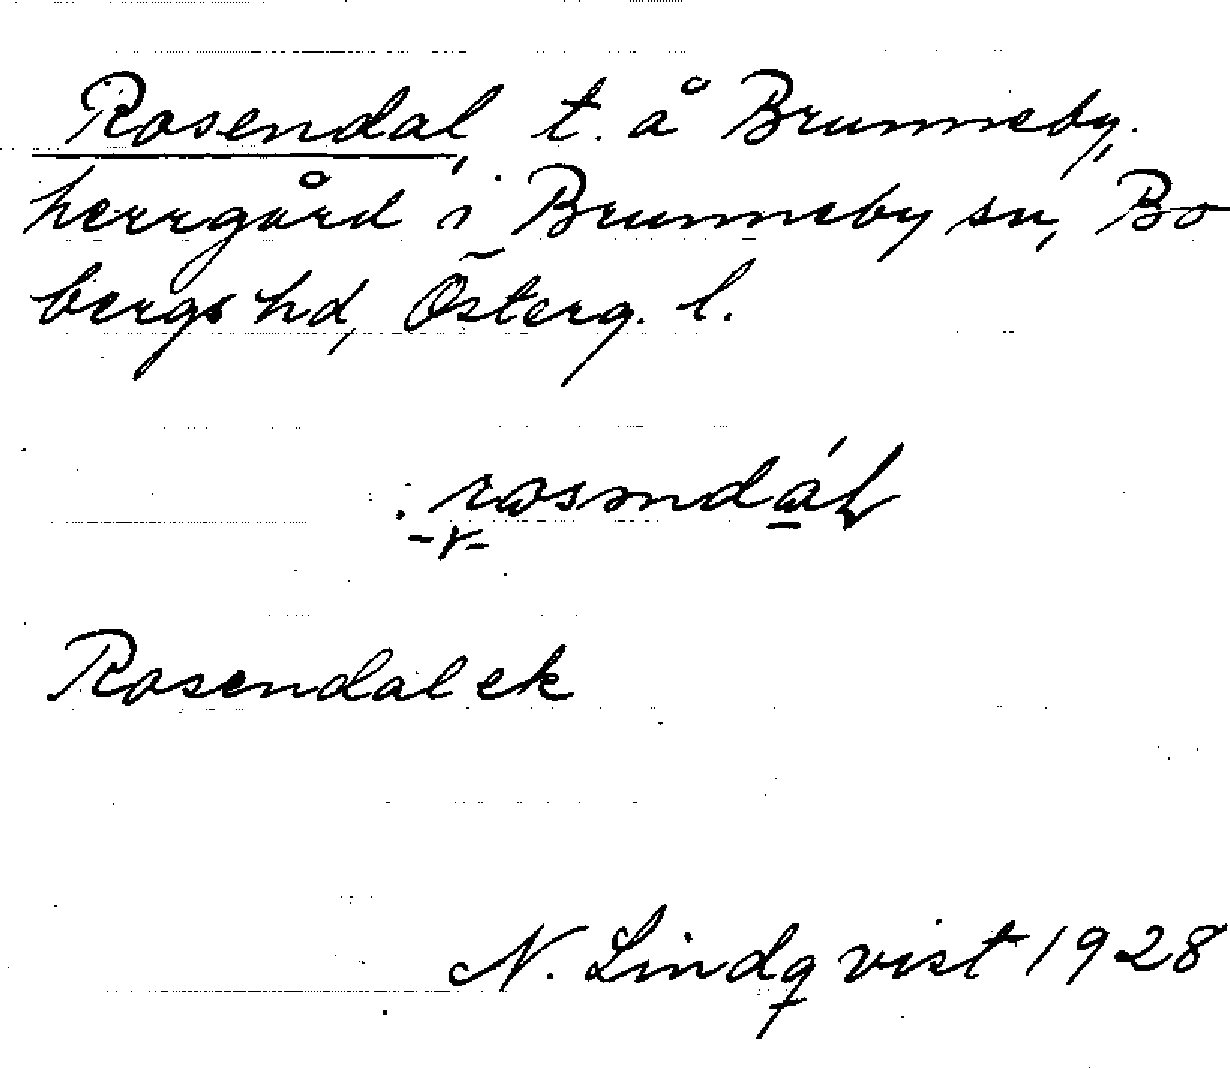 Rosendal, t. å Brunneby,
herrgård i Brunneby sn, Bo
bergs hd, Österg. l.
Rosendal ek
N. Lindqvist 1928